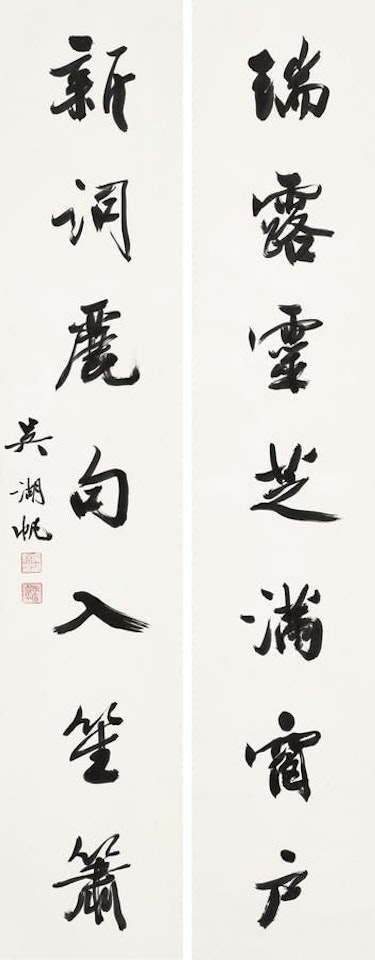 瑞露靈芝滿窗户
新詞麗句入笙簫
吳湖帆